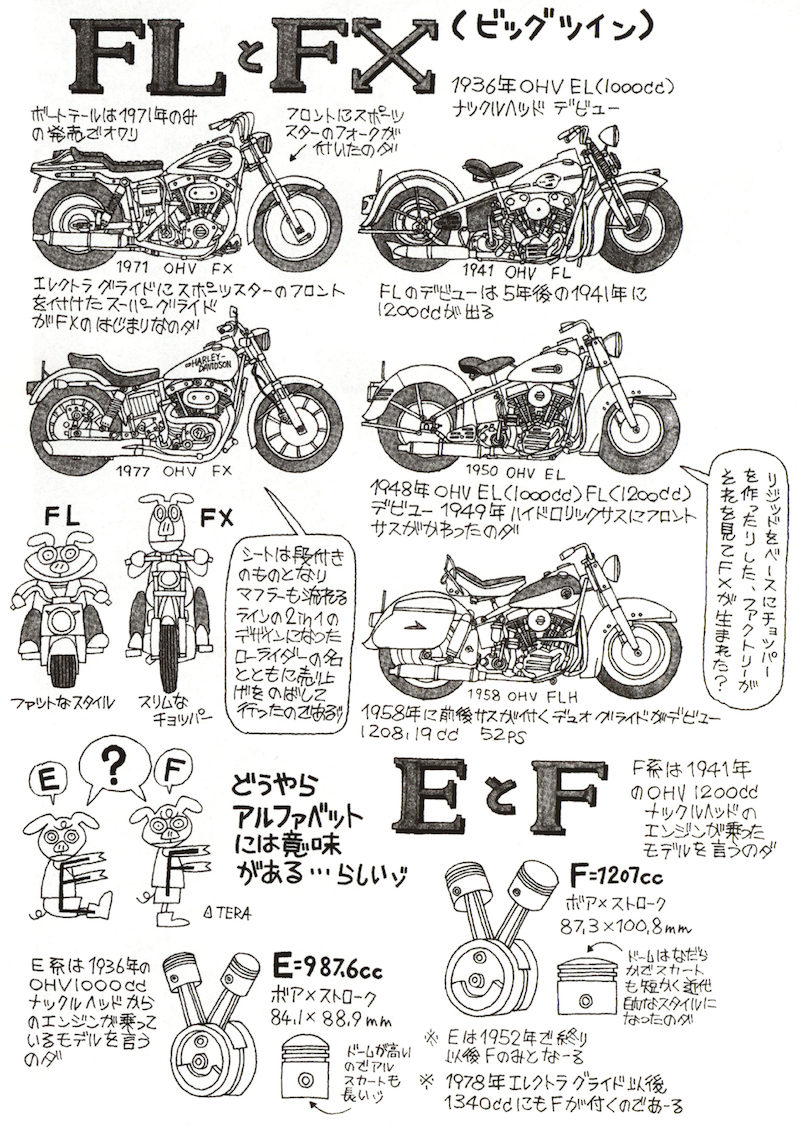 FLとFX(ビッグツイン)
1936年OHV EL(1000cc)
ナックルヘッド デビュー
ボートテールは1971年のみ
の発売でオワリ
フロントにスポーツ
スターのフォークが
付いたのダ
1971 OHV FX
1941 OHV FL
エレクトラグライドにスポーツスターのフロント
を付けたスーパーグライド
がFXのはじまりなのダ
FLのデビューは5年後の1941年に
1200ccが出る
HARLEY-
DAVIDSON
1977 OHV FX
1950 OHV EL
1948年OHV EL(1000cc)FL(1200cc)
デビュー 1949年ハイドロリックサスにフロント
サスがかわったのダ
リジッドをベースにチョッパー
を作ったりした、ファクトリーが
それを見てFXが生まれた?
FL
FX
ファットなスタイル
スリムな
チョッパー
シートは段付き
のものとなり
マフラーも流れる
ラインの2in1の
デザインになった
ローライダーの名
とともに売上
げをのばして
行ったのであるゾ
1958 OHV FLH
1958年に前後サスが付くデュオグライドがデビュー
1208,19cc 52PS
E
?
F
どうやら
アルファベット
には意味
がある…らしいゾ
E
F
△TERA
EとF
F系は1941年
のOHV1200cc
ナックルヘッドの
エンジンが乗った
モデルを言うのダ
F=1207cc
ボア×ストローク
87,3×100,8mm
ドームはなだら
かでスカート
も短かく近代
的なスタイルに
なったのダ
E系は1936年の
OHV1000cc
ナックルヘッドから
のエンジンが乗って
いるモデルを言う
のダ
E=987.6cc
ボア×ストローク
84.1×88,9mm
ドームが高い
のでアル
スカートも
長いゾ
※ Eは1952年で終り
以後Fのみとなーる
※ 1978年エレクトラグライド以後
1340ccにもFが付くのであーる